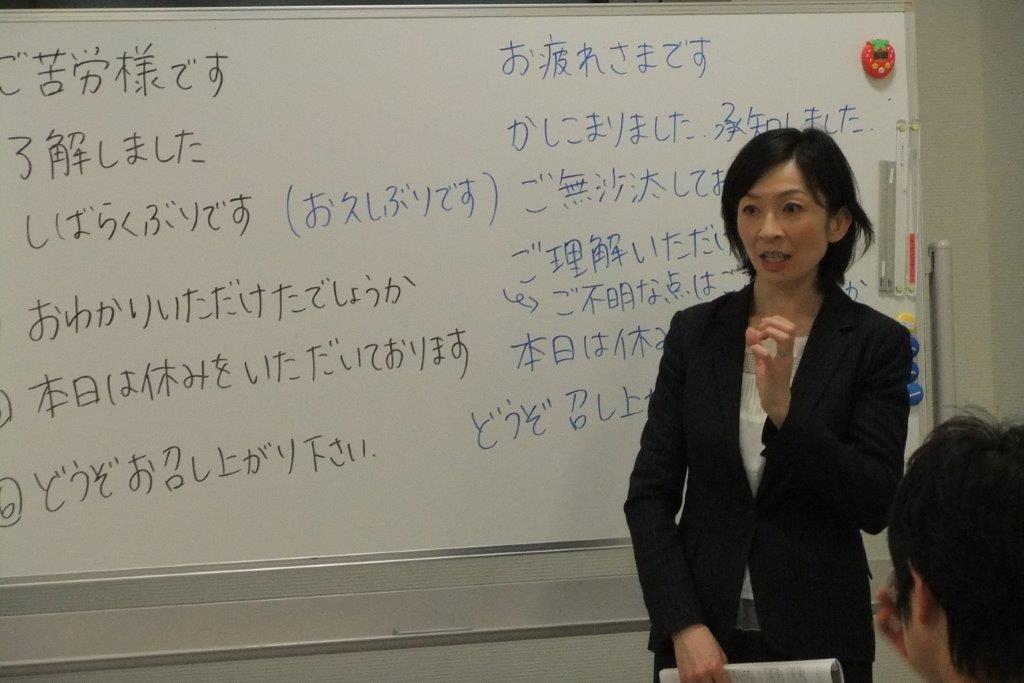 ご苦労様です お疲れさまです
了解しました かしこまりました.承知しました.
しばらくぶりです (お久しぶりです) ご無沙汰してお
おわかりいただけたでしょうか ご理解いただい
↳ ご不明な点はご か
本日は休みをいただいております 本日は休み
⑥ どうぞお召し上がり下さい. どうぞ召し上が